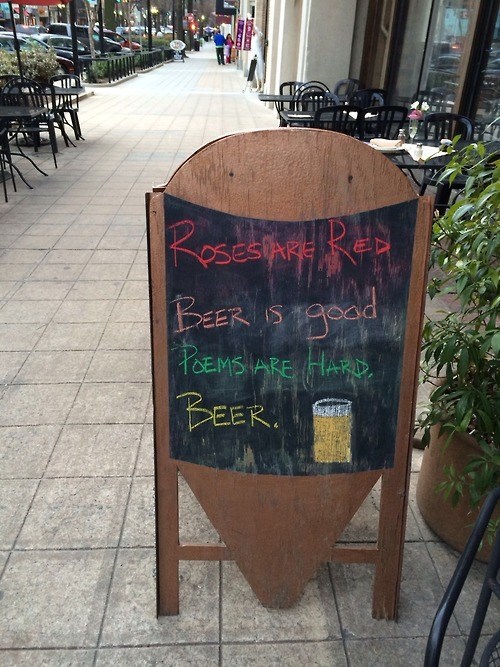 Roses are Red
Beer is good
Poems are Hard,
Beer.